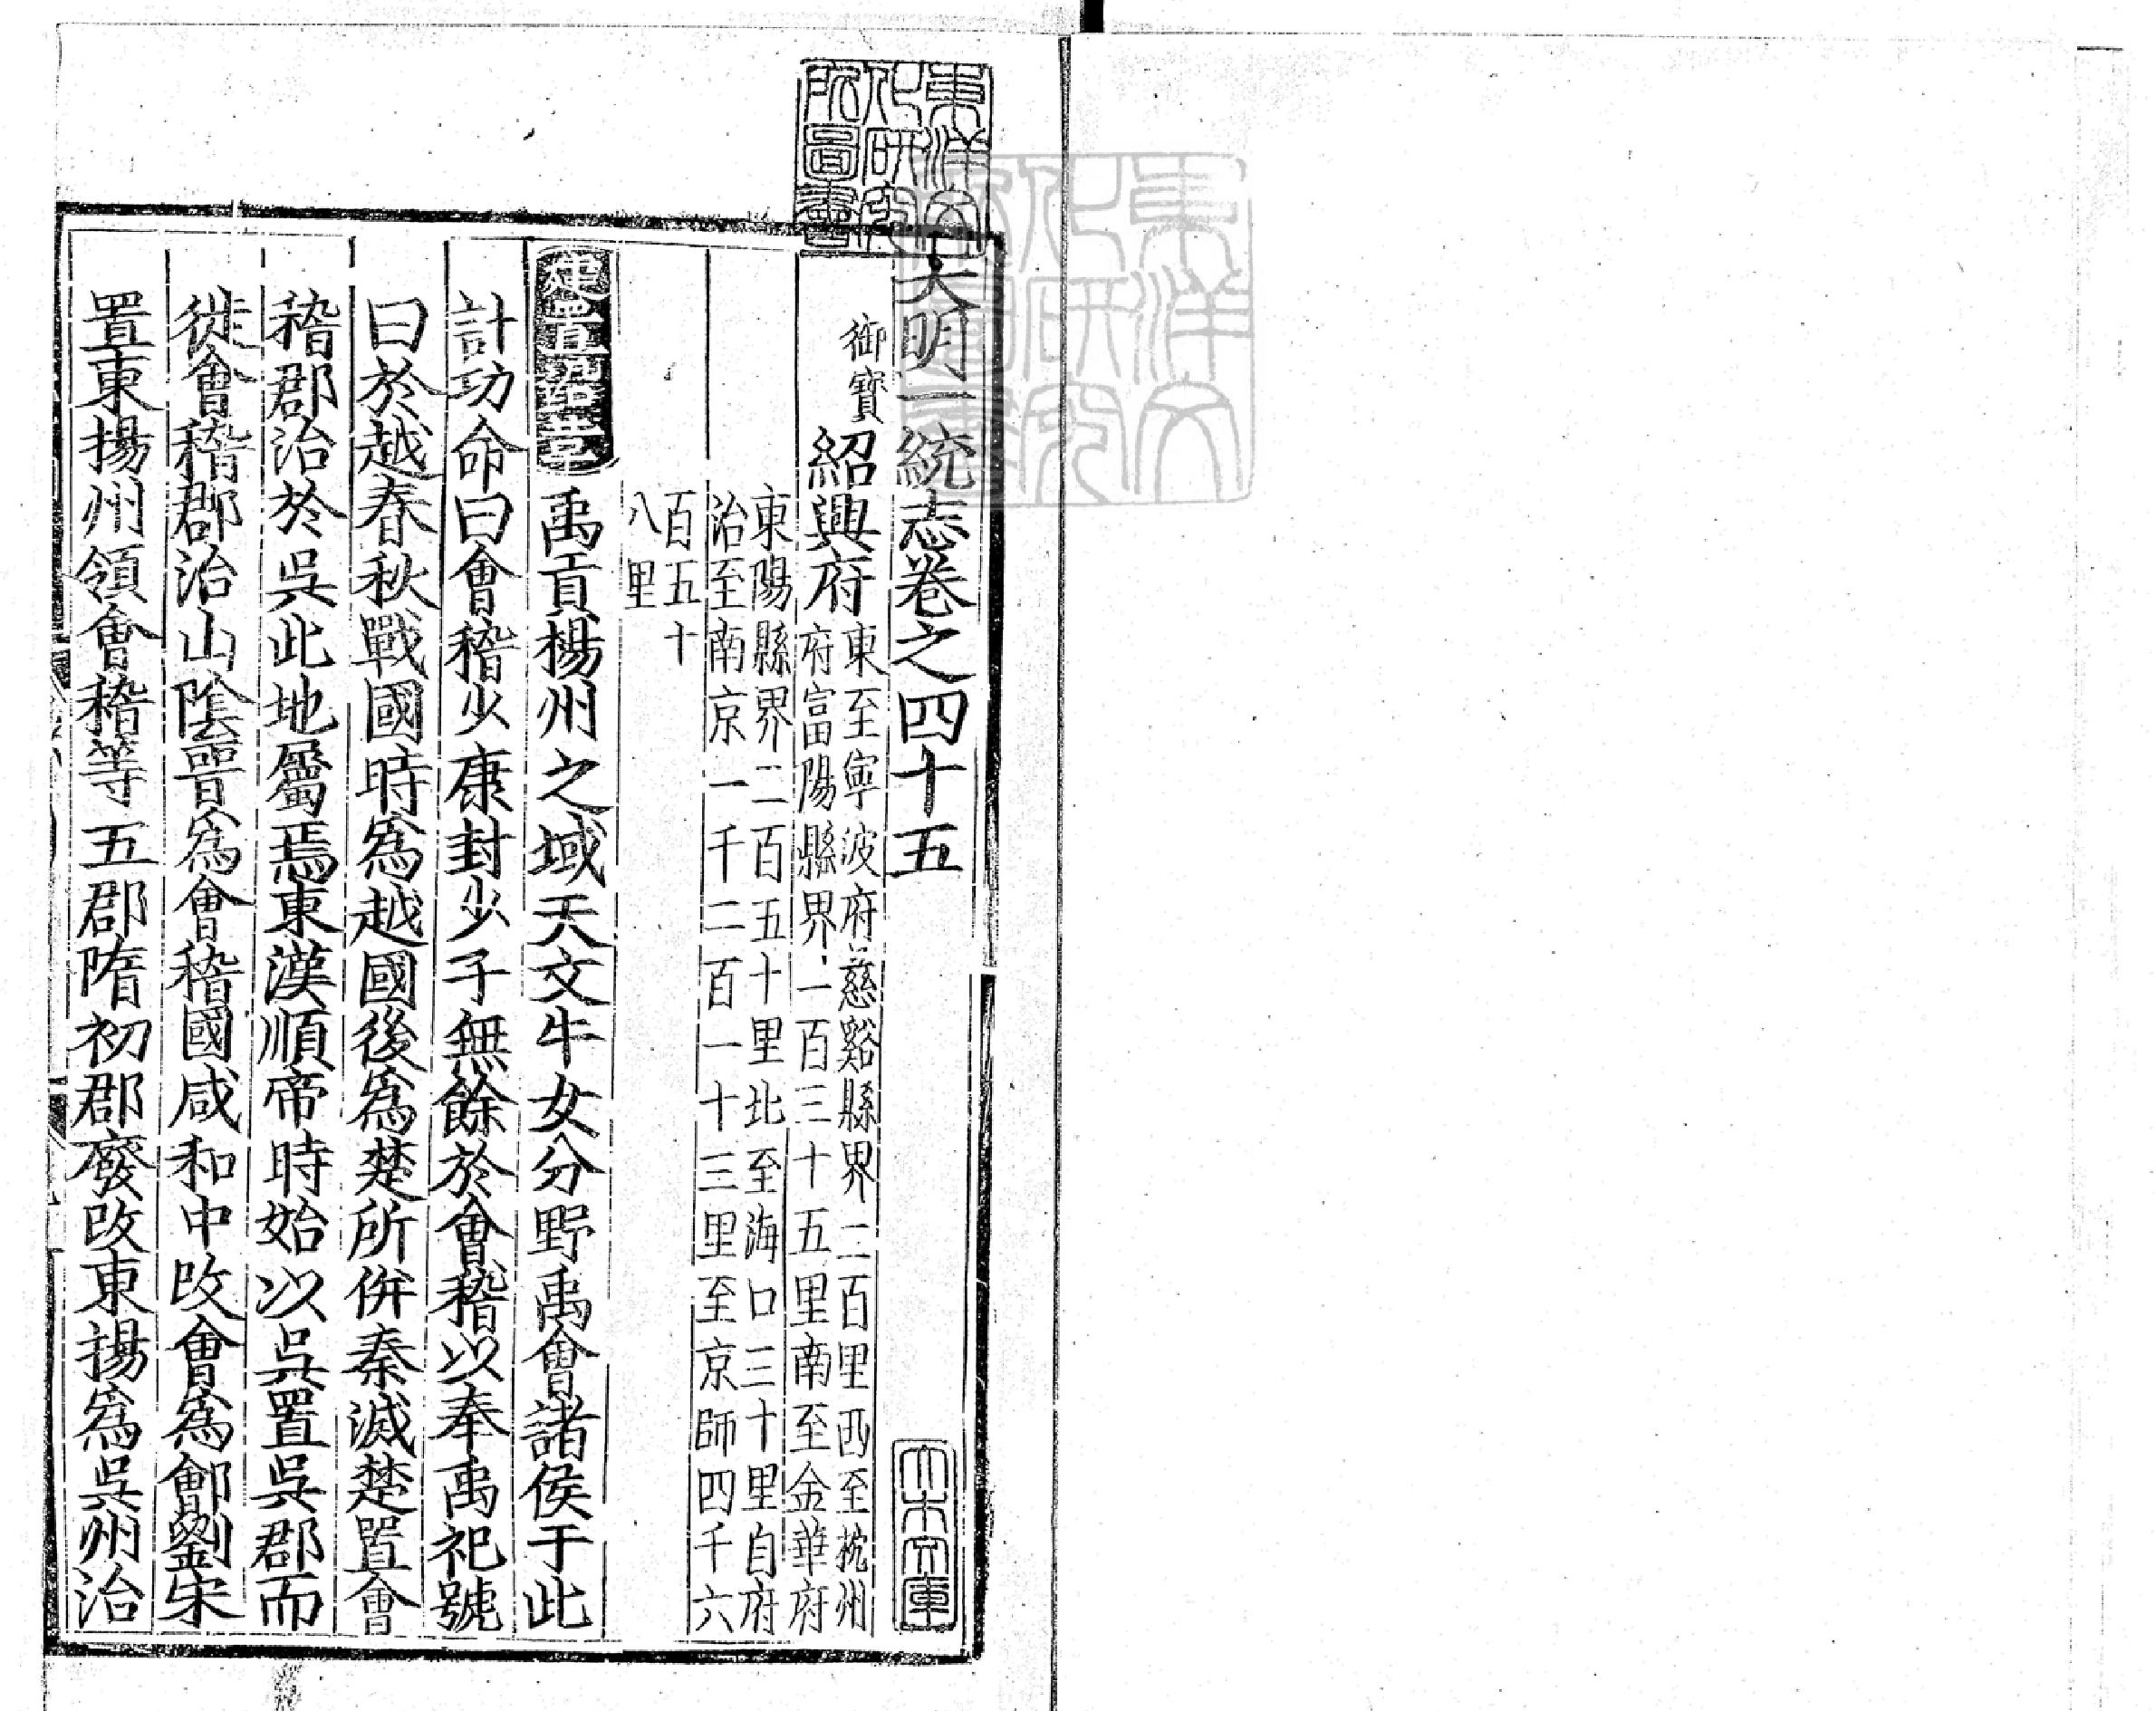 大明一統志卷之四十五
御寶
紹興府
東至寧波府慈谿縣界二百里西至杭州
府富陽縣界一百三十五里南至金華府
東陽縣界二百五十里北至海口三十里自府
治至南京一千二百一十三里至京師四千六
百五十
八里
建置沿革
禹貢揚州之域天文牛女分野禹會諸侯于此
計功命曰會稽少康封少子無餘於會稽以奉禹祀號
曰於越春秋戰國時為越國後為楚所併秦滅楚置會
稽郡治於吳此地屬焉東漢順帝時始以吳置吳郡而
徙會稽郡治山陰晉為會稽國咸和中改會為鄶劉宋
置東揚州領會稽等五郡隋初郡廢改東揚為吳州治
東洋文化研究所圖書
大木文庫